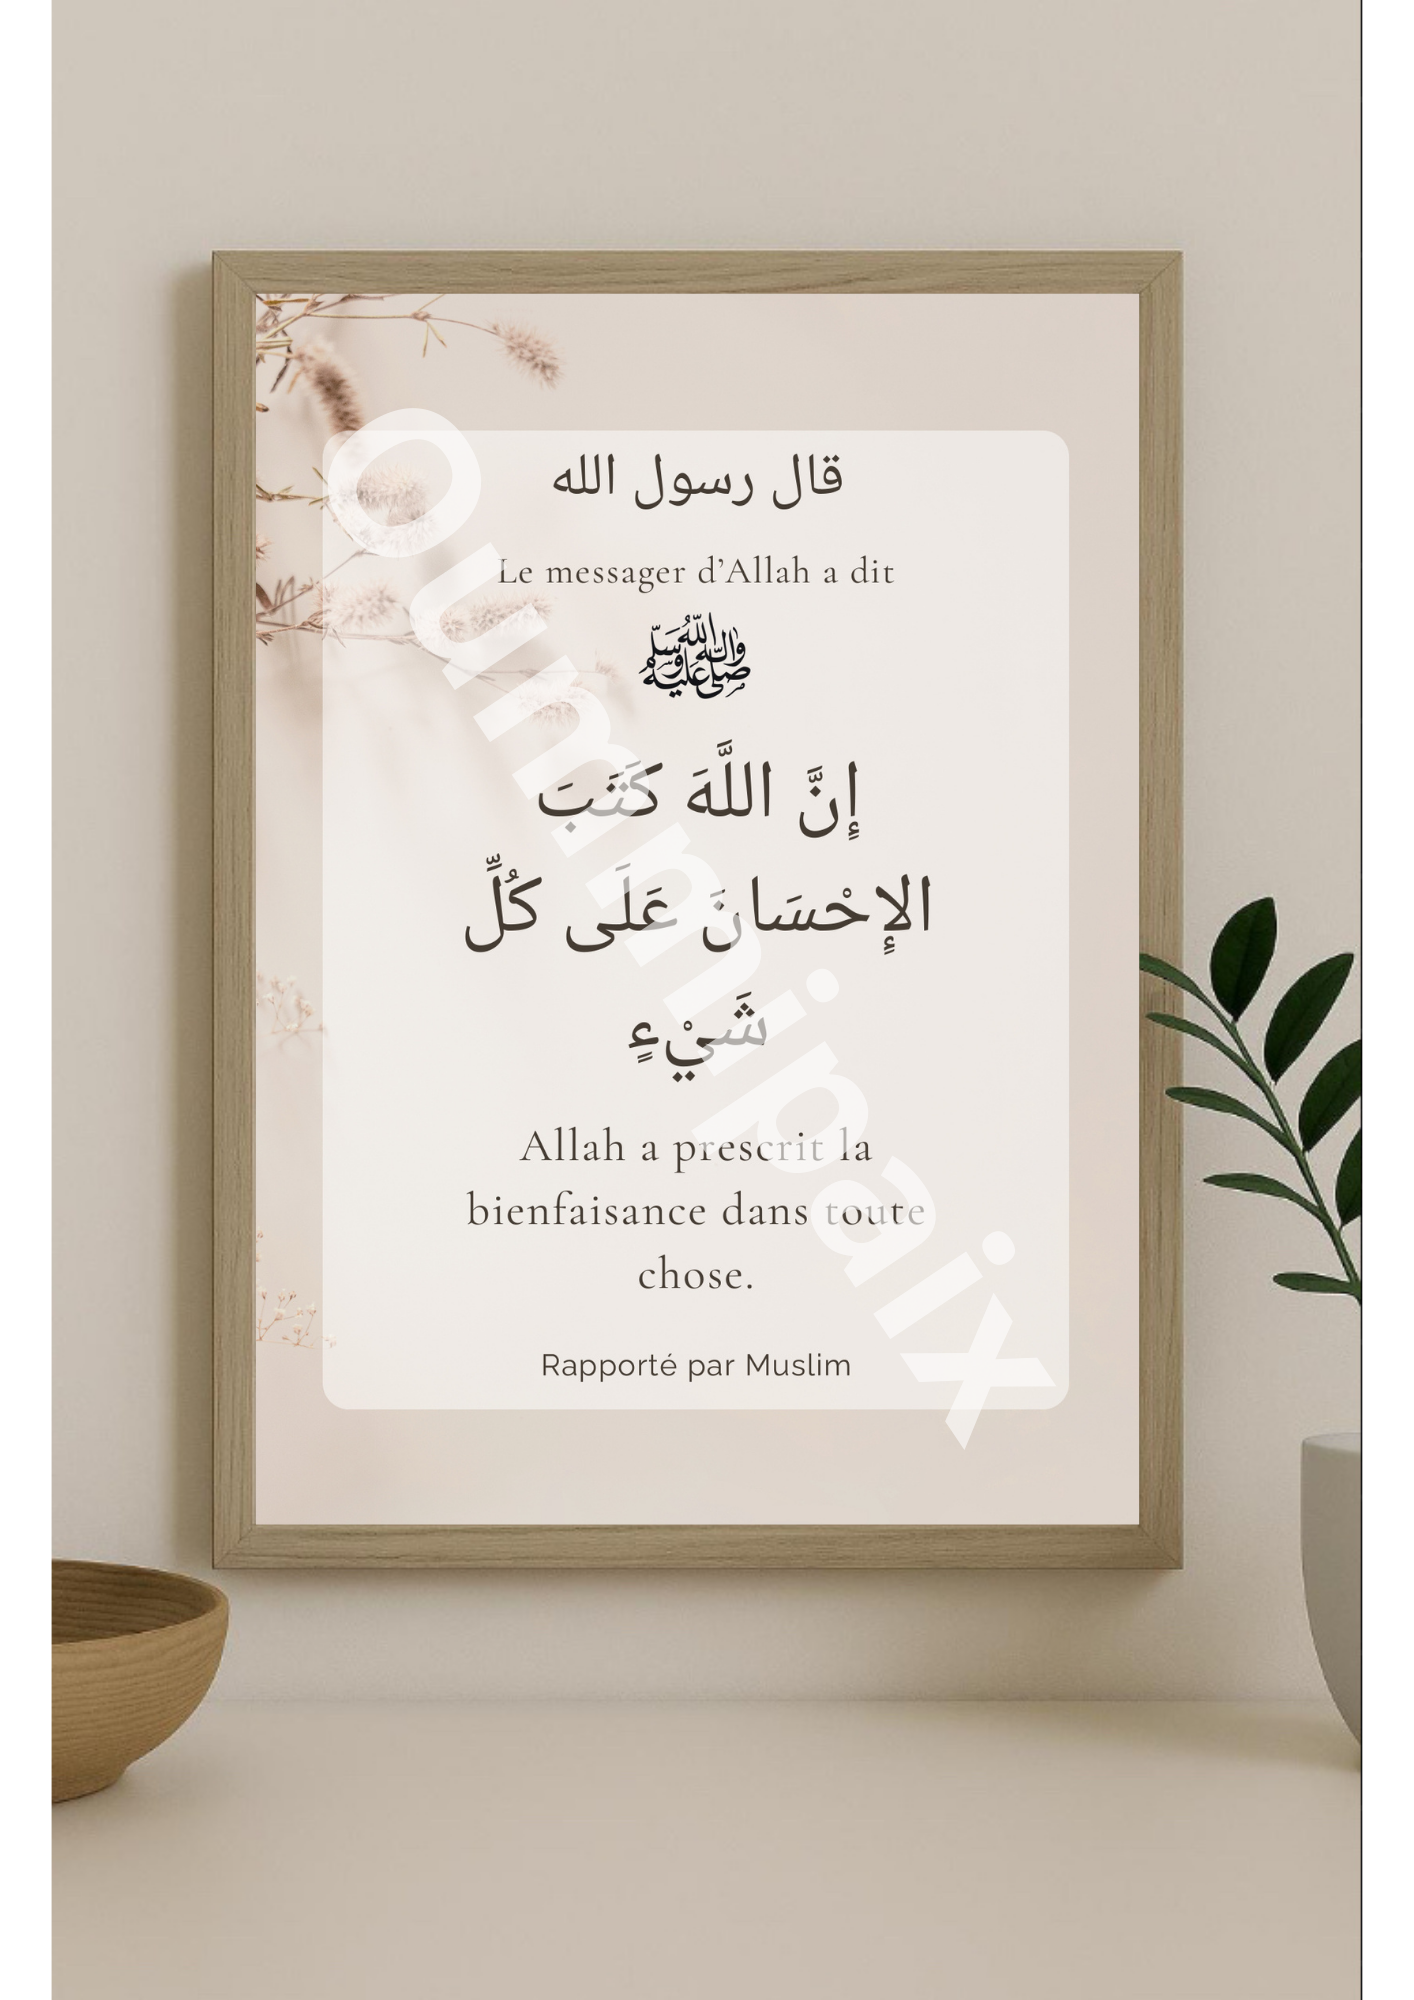 قال رسول الله
Le messager d’Allah a dit
ﷺ
إِنَّ اللَّهَ كَتَبَ
الإِحْسَانَ عَلَى كُلِّ
شَيْءٍ
Allah a prescrit la
bienfaisance dans toute
chose.
Rapporté par Muslim
Oummipaix